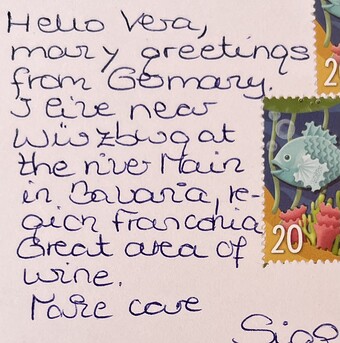 Hello Vera,
many greetings
from Germany.
I live near
Würzburg at
the river Main
in Bavaria, re-
gion Franconia
Great area of
wine.
Take care
20